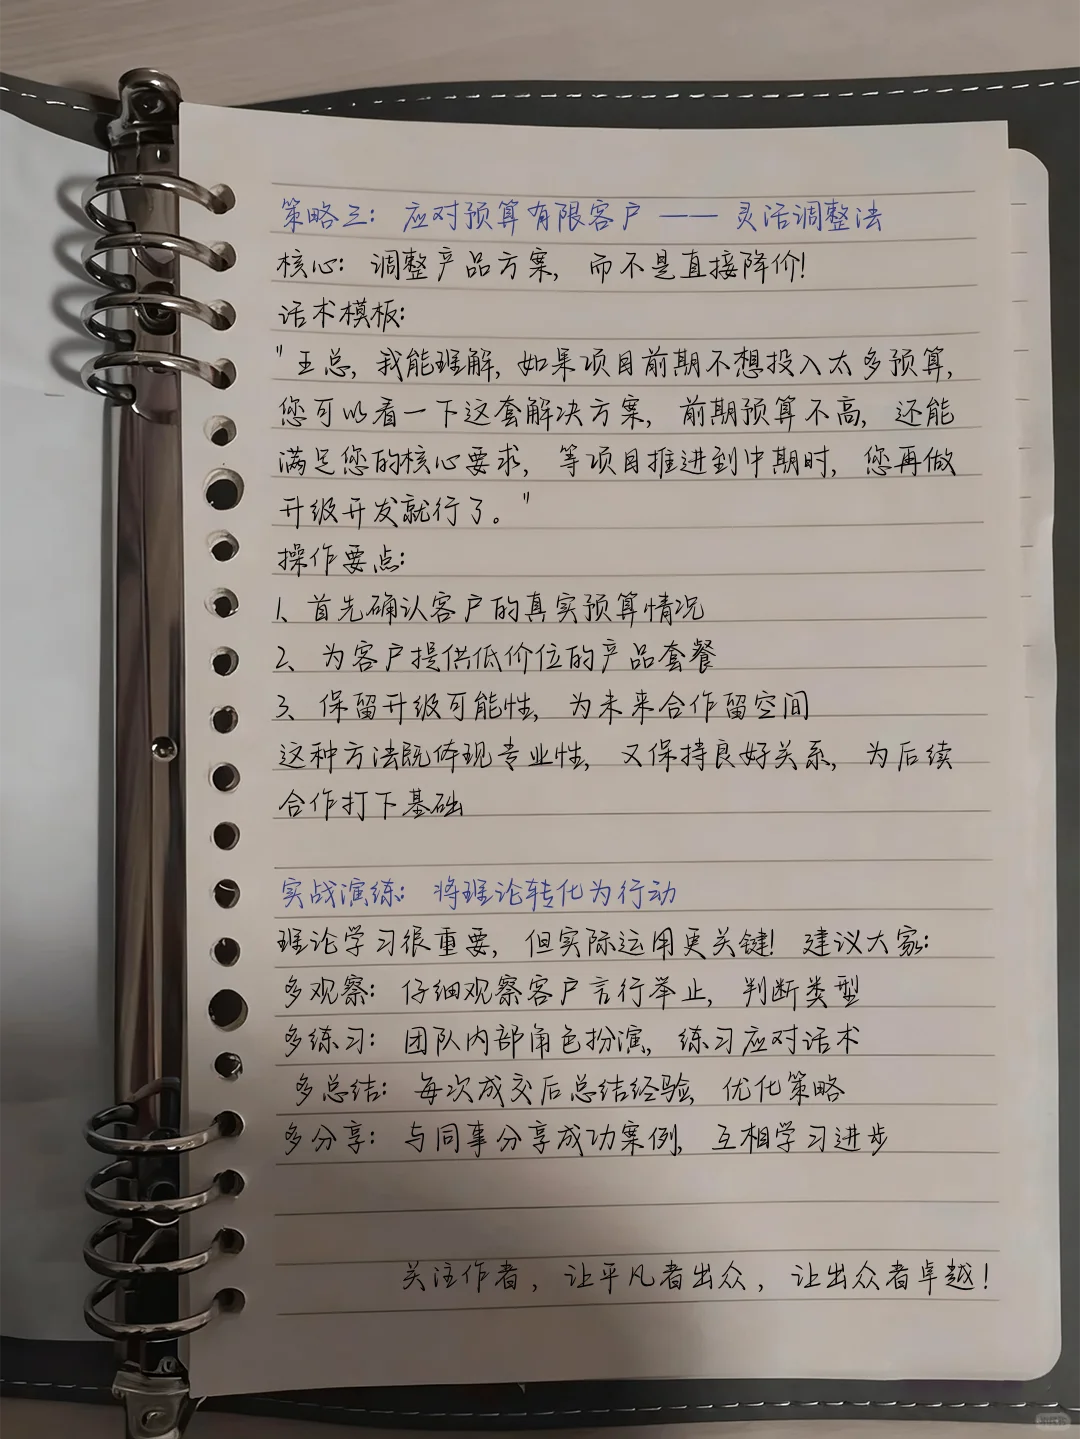 策略三: 应对预算有限客户 —— 灵活调整法
核心: 调整产品方案, 而不是直接降价!
话术模板:
"王总, 我能理解, 如果项目前期不想投入太多预算,
您可以看一下这套解决方案, 前期预算不高, 还能
满足您的核心要求, 等项目推进到中期时, 您再做
升级开发就行了。"
操作要点:
1、首先确认客户的真实预算情况
2、为客户提供低价位的产品套餐
3、保留升级可能性, 为未来合作留空间
这种方法既体现专业性, 又保持良好关系, 为后续
合作打下基础
实战演练: 将理论转化为行动
理论学习很重要, 但实际运用更关键! 建议大家:
多观察: 仔细观察客户言行举止, 判断类型
多练习: 团队内部角色扮演, 练习应对话术
多总结: 每次成交后总结经验, 优化策略
多分享: 与同事分享成功案例, 互相学习进步
关注作者, 让平凡者出众, 让出众者卓越!